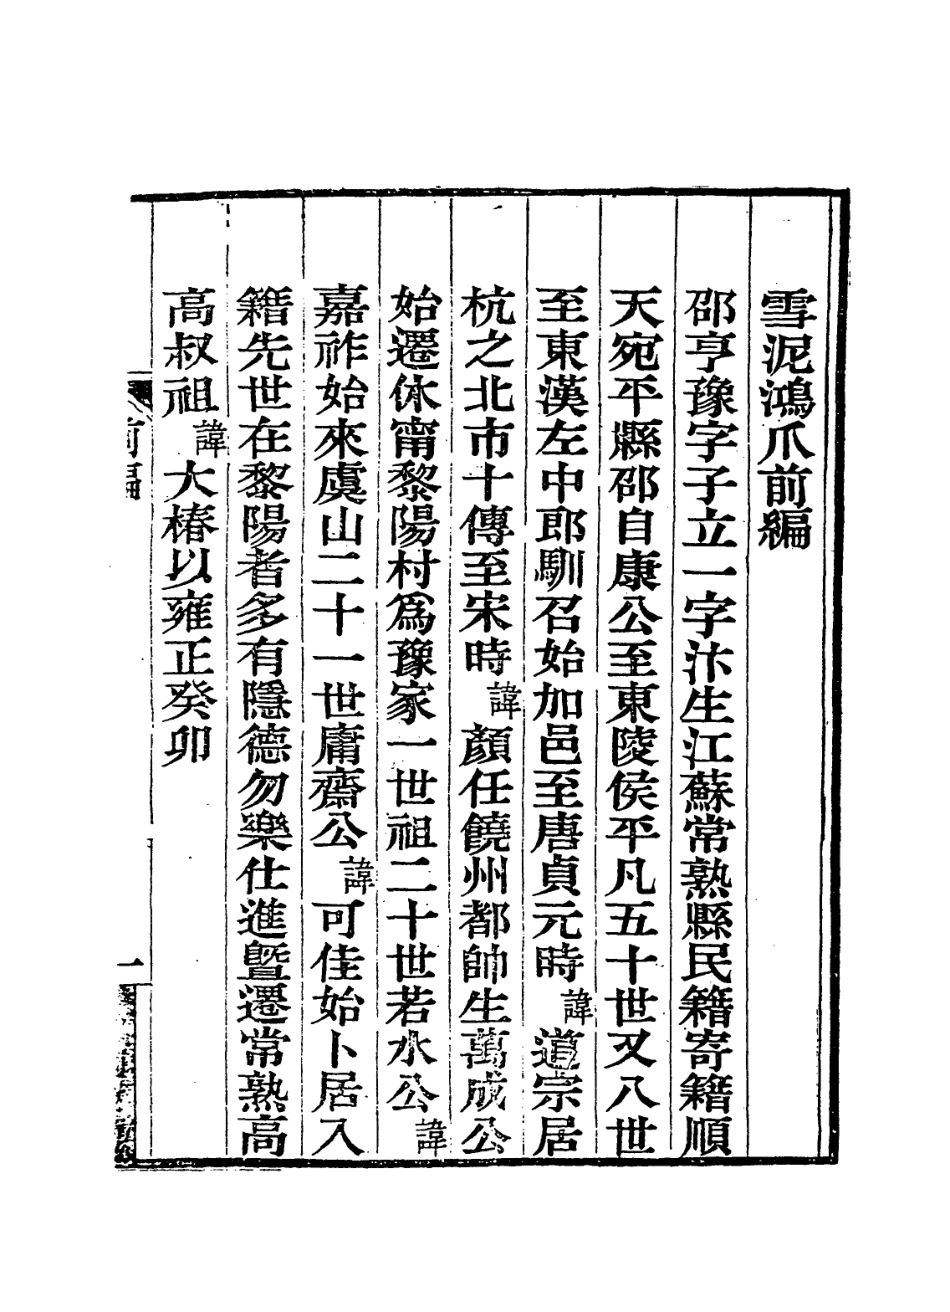 雪泥鴻爪前編
邵亨豫字子立一字汴生江蘇常熟縣民籍寄籍順
天宛平縣邵自康公至東陵侯平凡五十世又八世
至東漢左中郎馴召始加邑至唐貞元時諱道宗居
杭之北市十傳至宋時諱顏任饒州都帥生萬成公
始遷休甯黎陽村爲豫家一世祖二十世若水公諱
嘉祚始來虞山二十一世庸齋公諱可佳始卜居入
籍先世在黎陽者多有隱德勿樂仕進曁遷常熟高
高叔祖諱大椿以雍正癸卯
前編
一